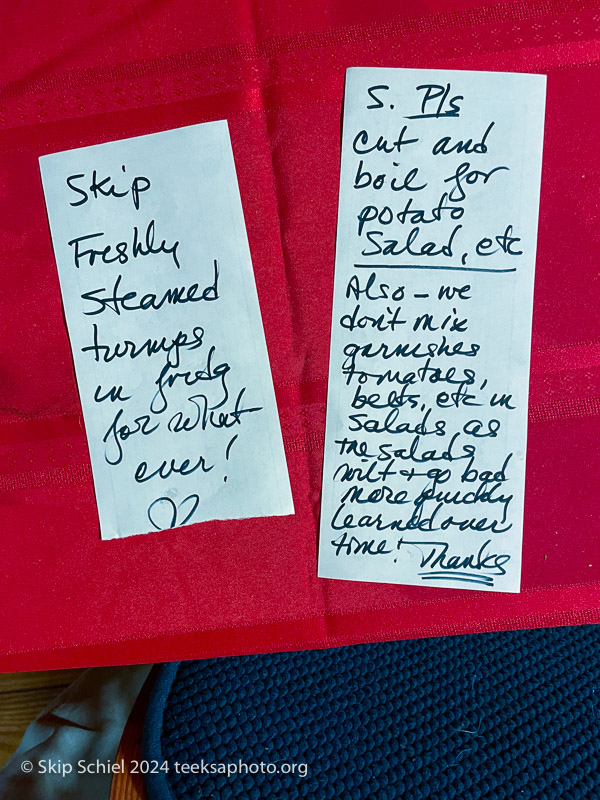 Skip
Freshly
steamed
turnips
in fridg
for what
ever!
S. Pls
cut and
boil for
potato
Salad, etc
Also - we
don't mix
garnishes
tomatoes,
beets, etc in
Salads as
the salads
wilt + go bad
more quickly
learned over
time! Thanks
© Skip Schiel 2024 teeksaphoto.org